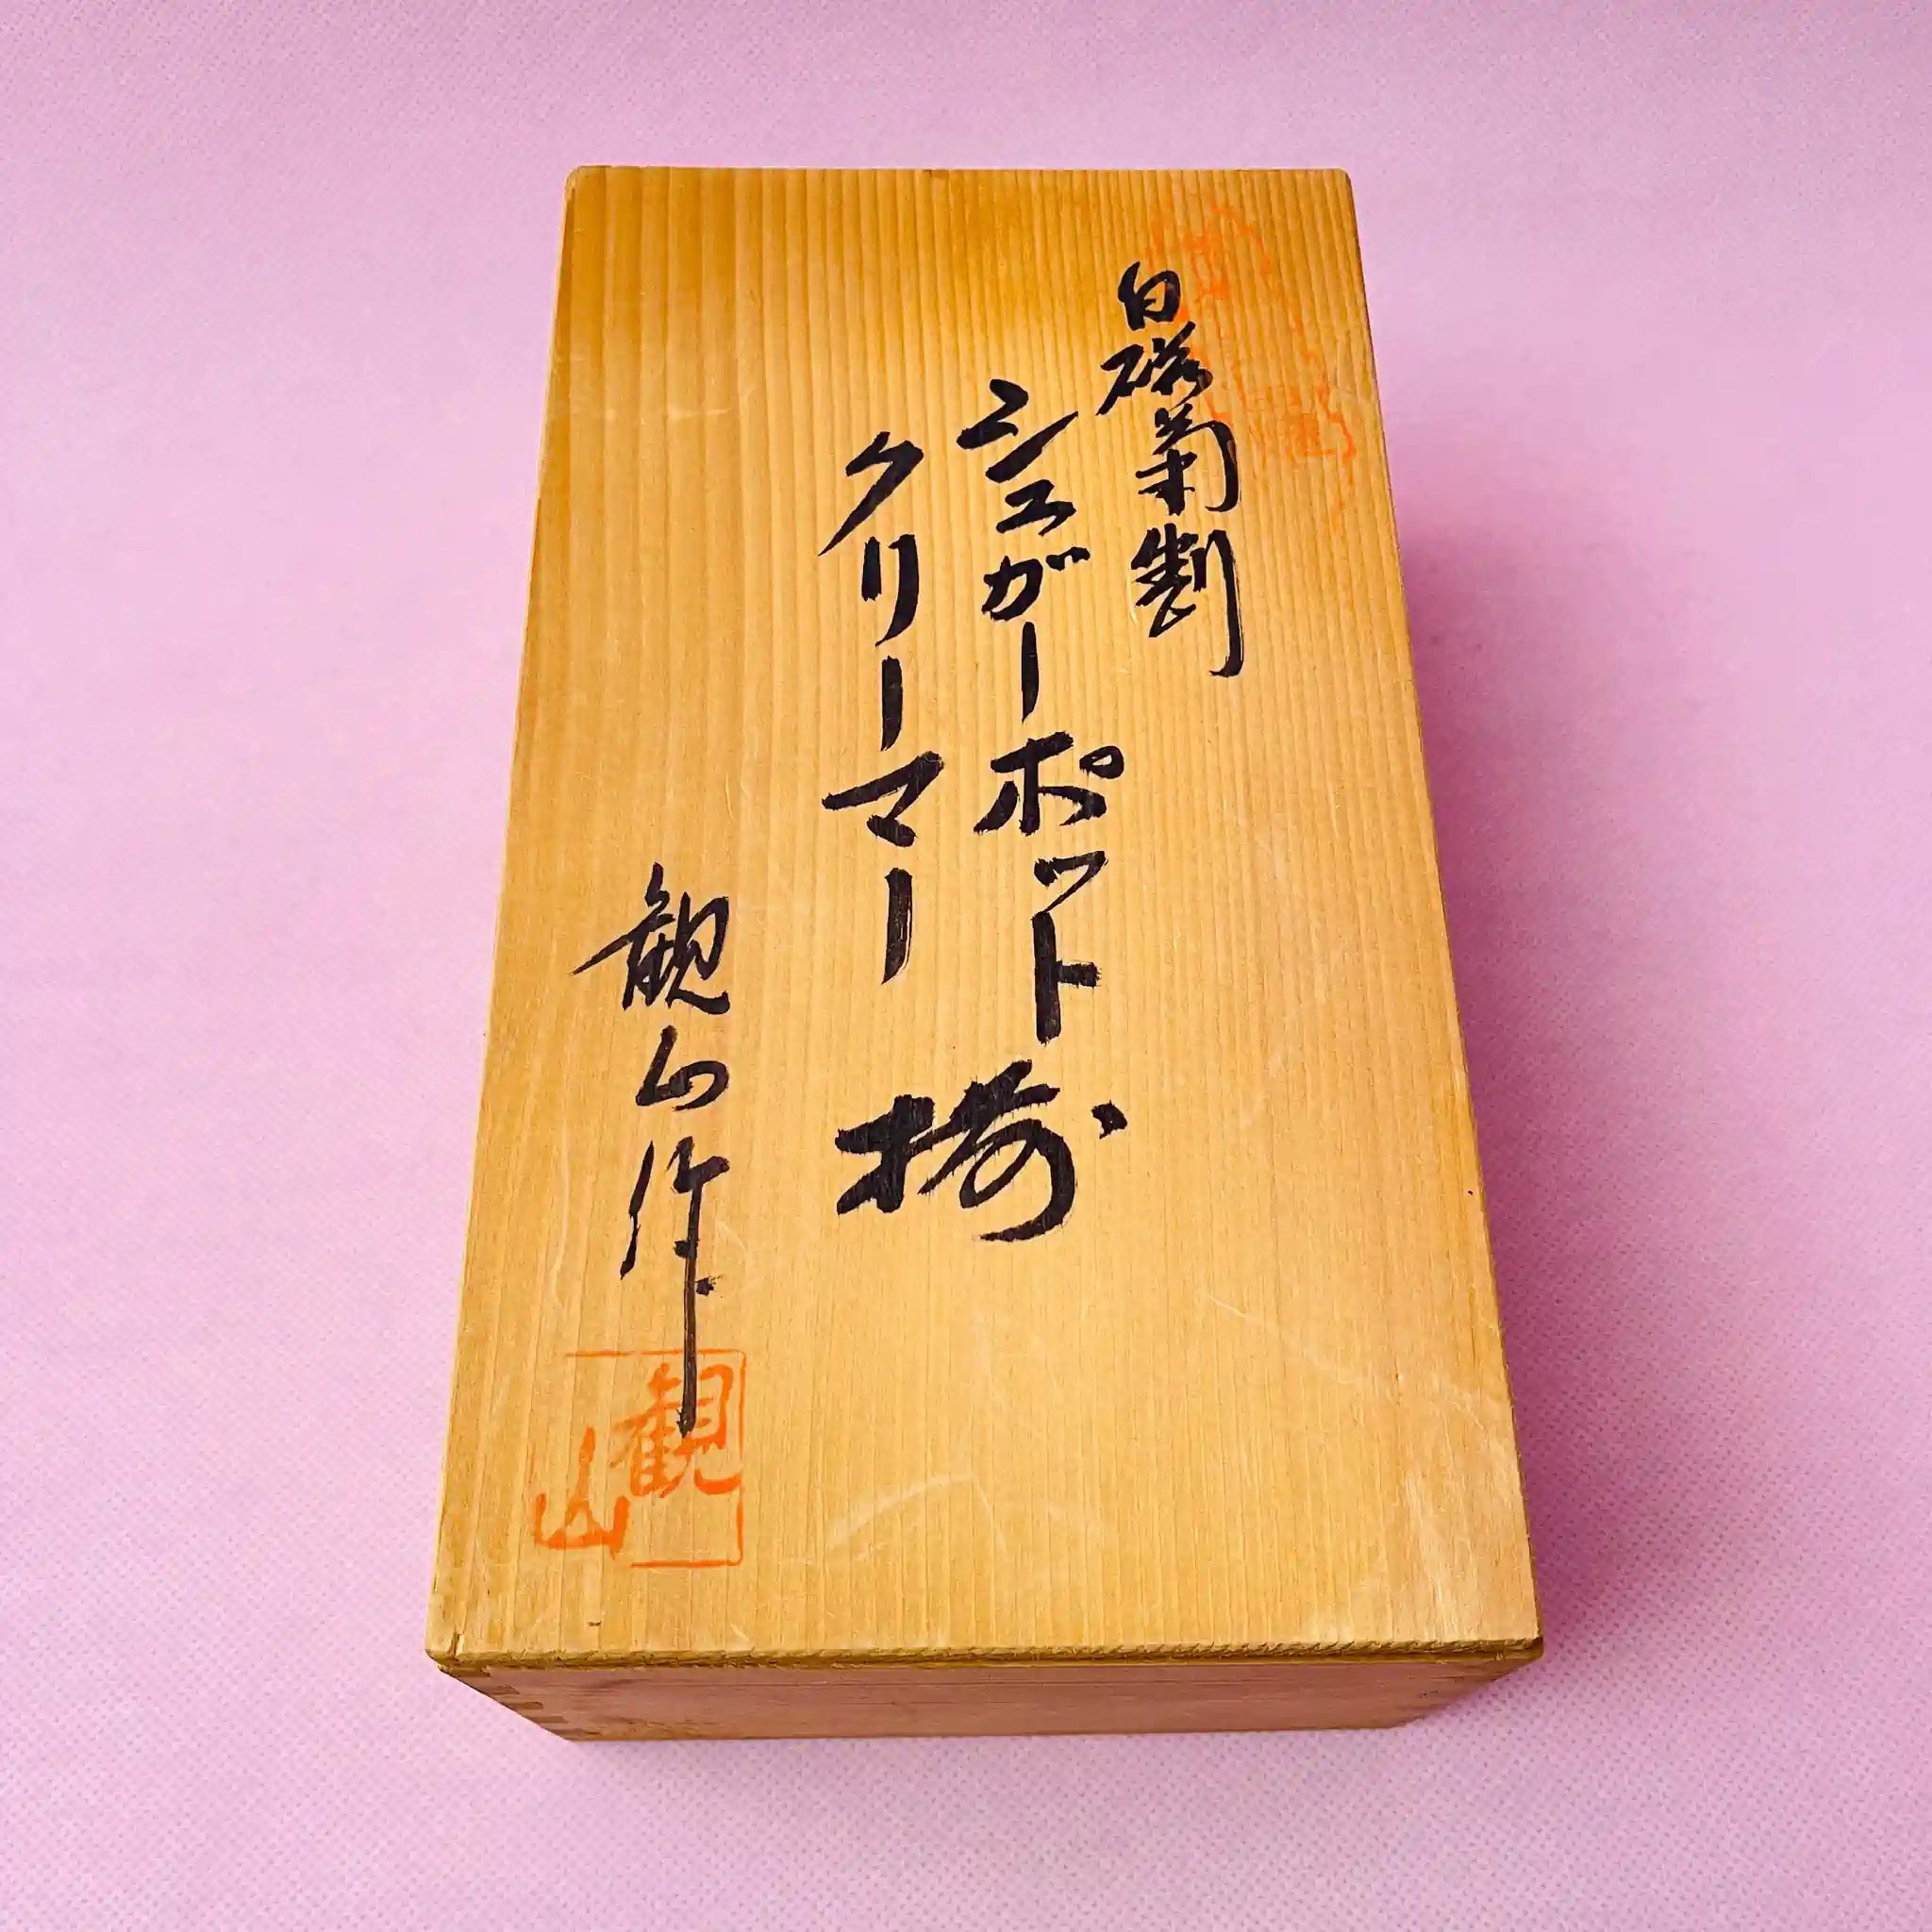 白磁菊割
シュガーポット
クリーマー
揃
観山作
観山